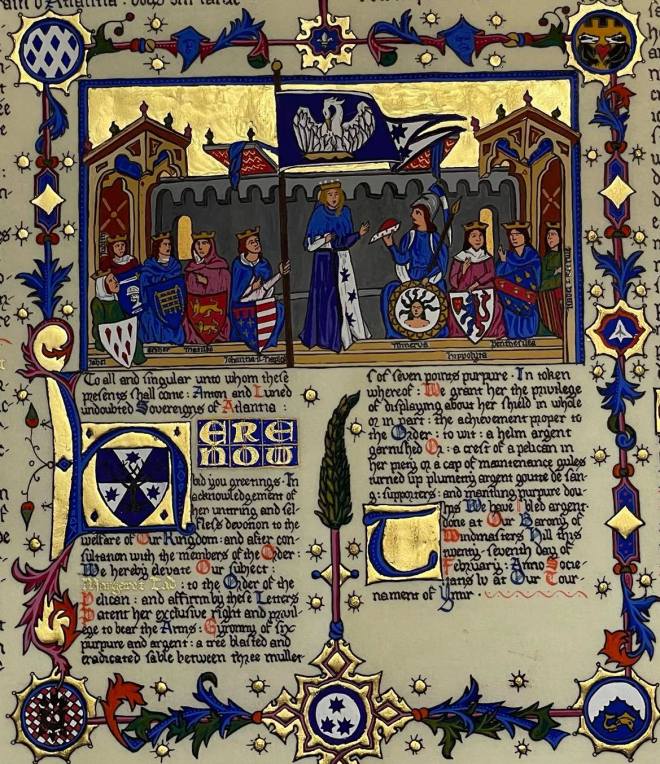 d'Atlantia :
Matilda
Minerva
Hippolyta
Penthesilea
To all and singular unto whom these
presents shall come : Anton and Luned
undoubted Sovereigns of Atlantia :
H
ERE
NOW
bid you greetings · In
acknowledgement of
her untiring and sel
fless devotion to the
welfare of Our Kingdom : and after con
sultation with the members of the Order :
We hereby elevate Our subject :
Margaret Lad : to the Order of the
Pelican : and affirm by these Letters
Patent her exclusive right and privil
ege to bear the Arms : Gyronny of six
purpure and argent : a tree blasted and
eradicated sable between three mullet
s of seven points purpure · In token
whereof : We grant her the privilege
of displaying about her shield in whole
or in part : the achievement proper to
the Order : to wit : a helm argent
garnished Or : a crest of a pelican in
her piety or a cap of maintenance gules
turned up plumetty argent goutte de san
g : supporters : and mantling purpure dou
bled argent ·
This We have
done at Our Barony of
Windmasters Hill this
twenty-seventh day of
February : Anno Socie
tatis lv at Our Tour
nament of Ymir ·